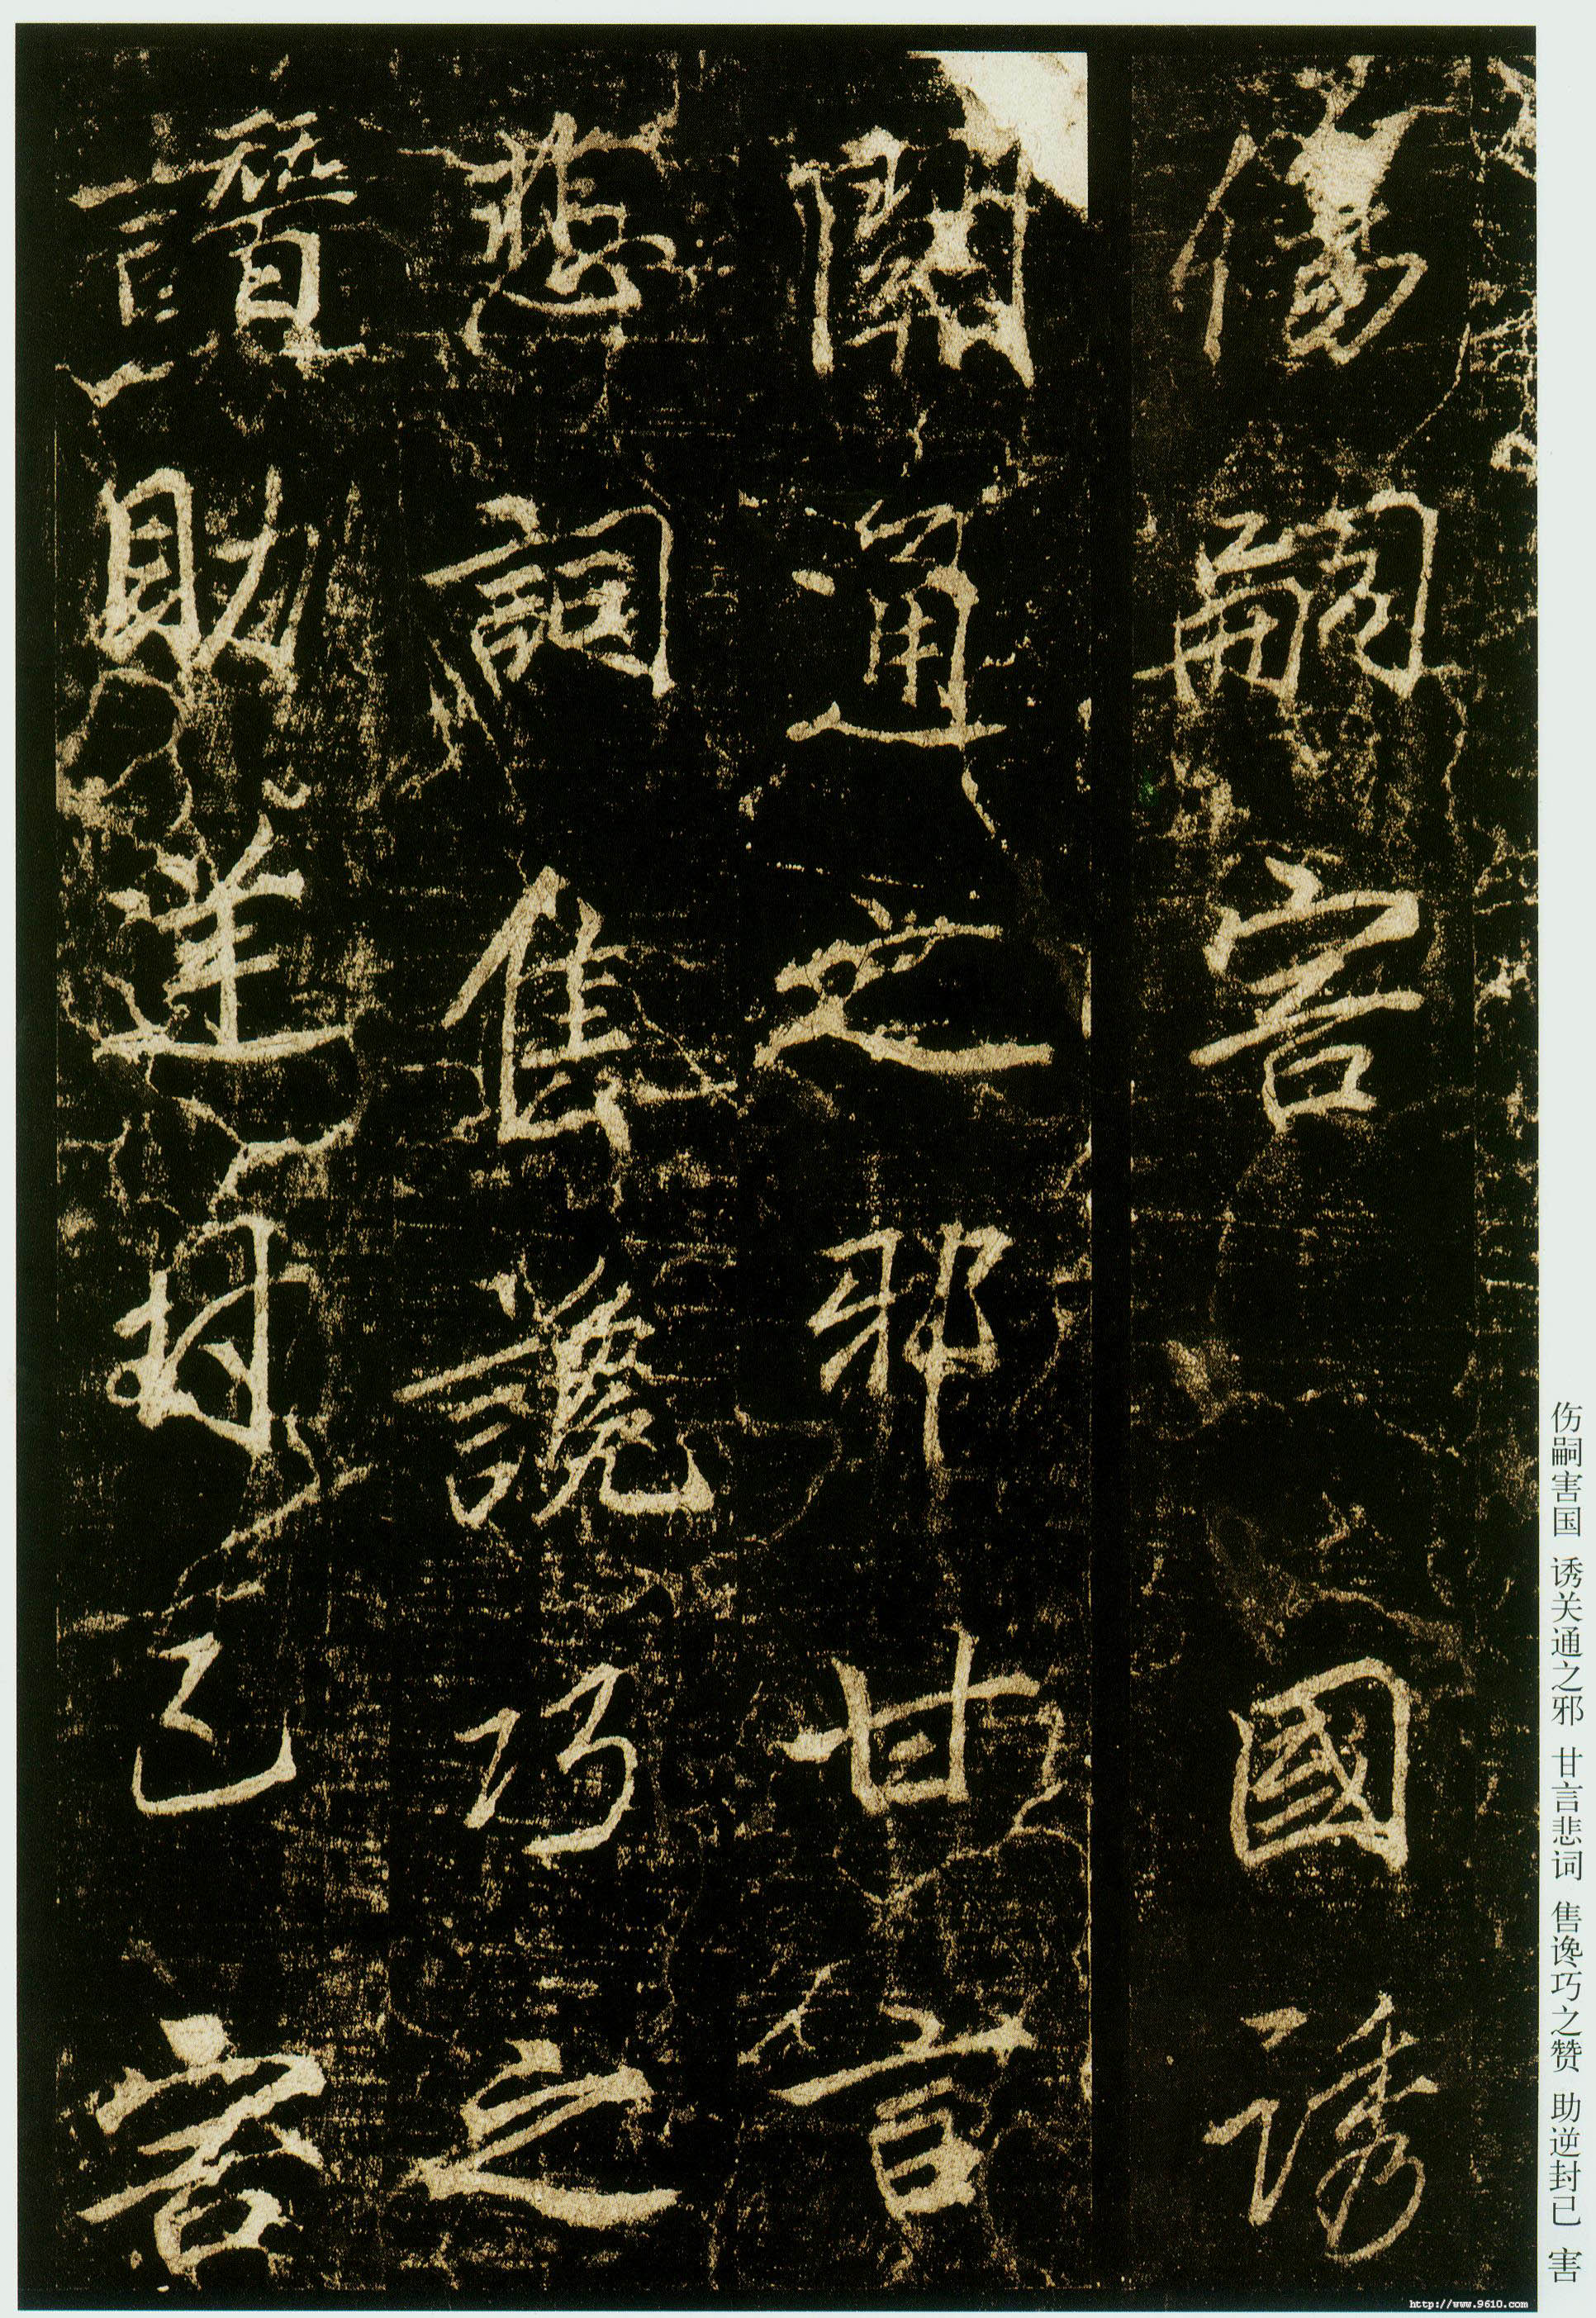 傷嗣害國誘
關通之邪甘言
悲詞售讒巧之
譖助逆封己害
伤嗣害国 诱关通之邪 甘言悲词 售谗巧之赞 助逆封已 害
http://www.9610.com